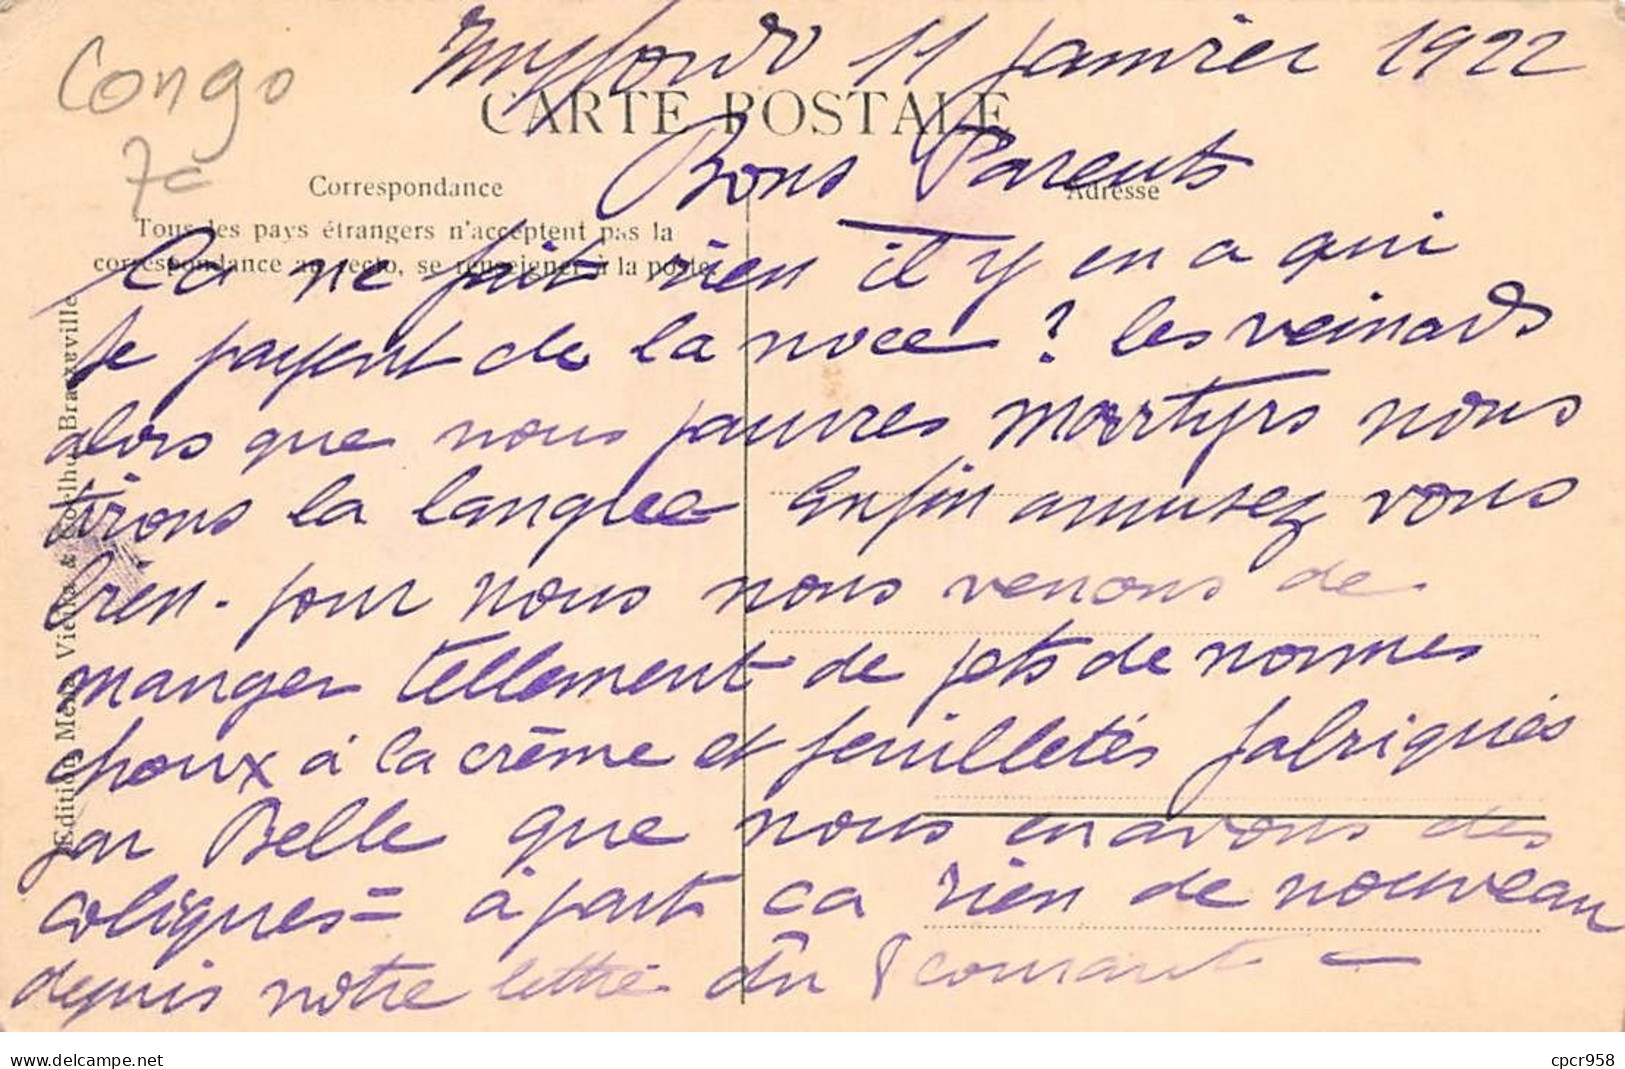 Congo
7c
11 janvier 1922
CARTE POSTALE
Bons Parents
Correspondance
Adresse
Tous les pays étrangers n'acceptent pas la
correspondance au recto, se renseigner à la poste
Ca ne fait rien il y en a qui
se payent de la noce ? les veinards
alors que nous pauvres martyrs nous
tirons la langue enfin amusez vous
bien - pour nous nous venons de
manger tellement de pets de nonnes
choux à la crême et feuilletés fabriqués
par Belle que nous en avons des
coliques = à part ca rien de nouveau
depuis notre lettre du 8 courant -
Edition Mène Vieilla & Brazzaville
www.delcampe.net
cpcr958